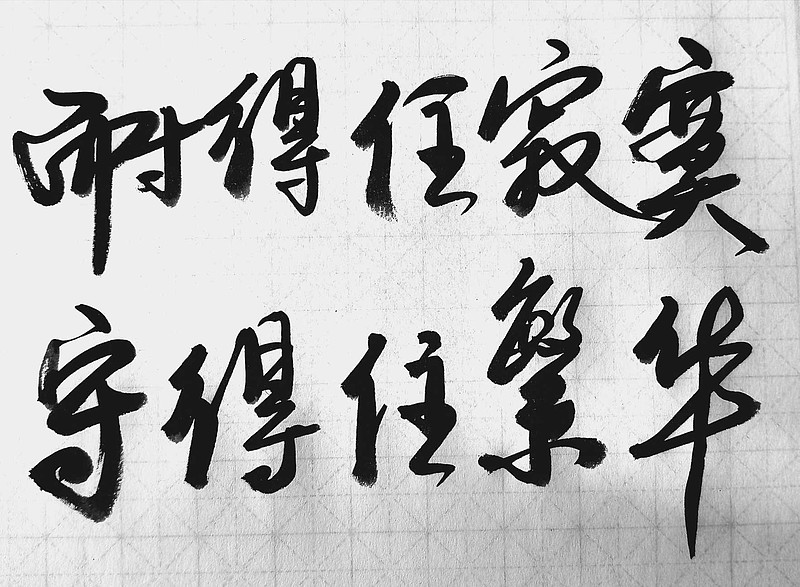 耐得住寂寞
守得住繁华